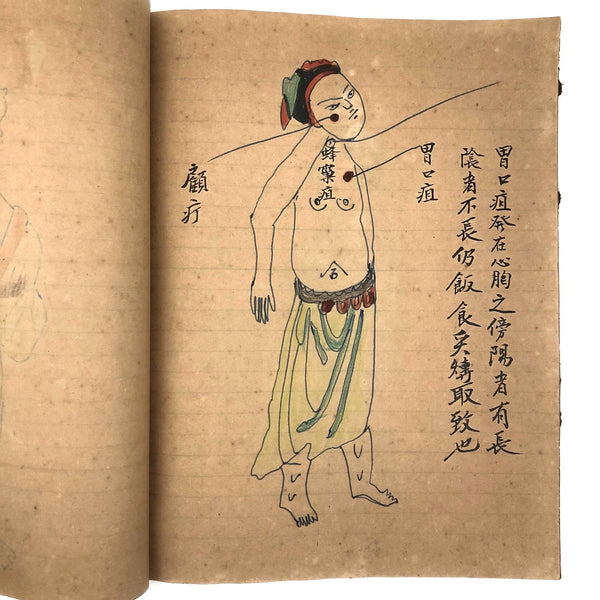 胃口疽發在心胸之傍陽者有長
陰者不長仍飯食炙煿取致也
胃口疽
蜂窠疽
顧疔